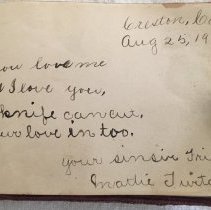 Creston,
Aug 25, 19
ou love me
I love you,
knife can cut,
ur love in too.
your sinsir Fri
Matie